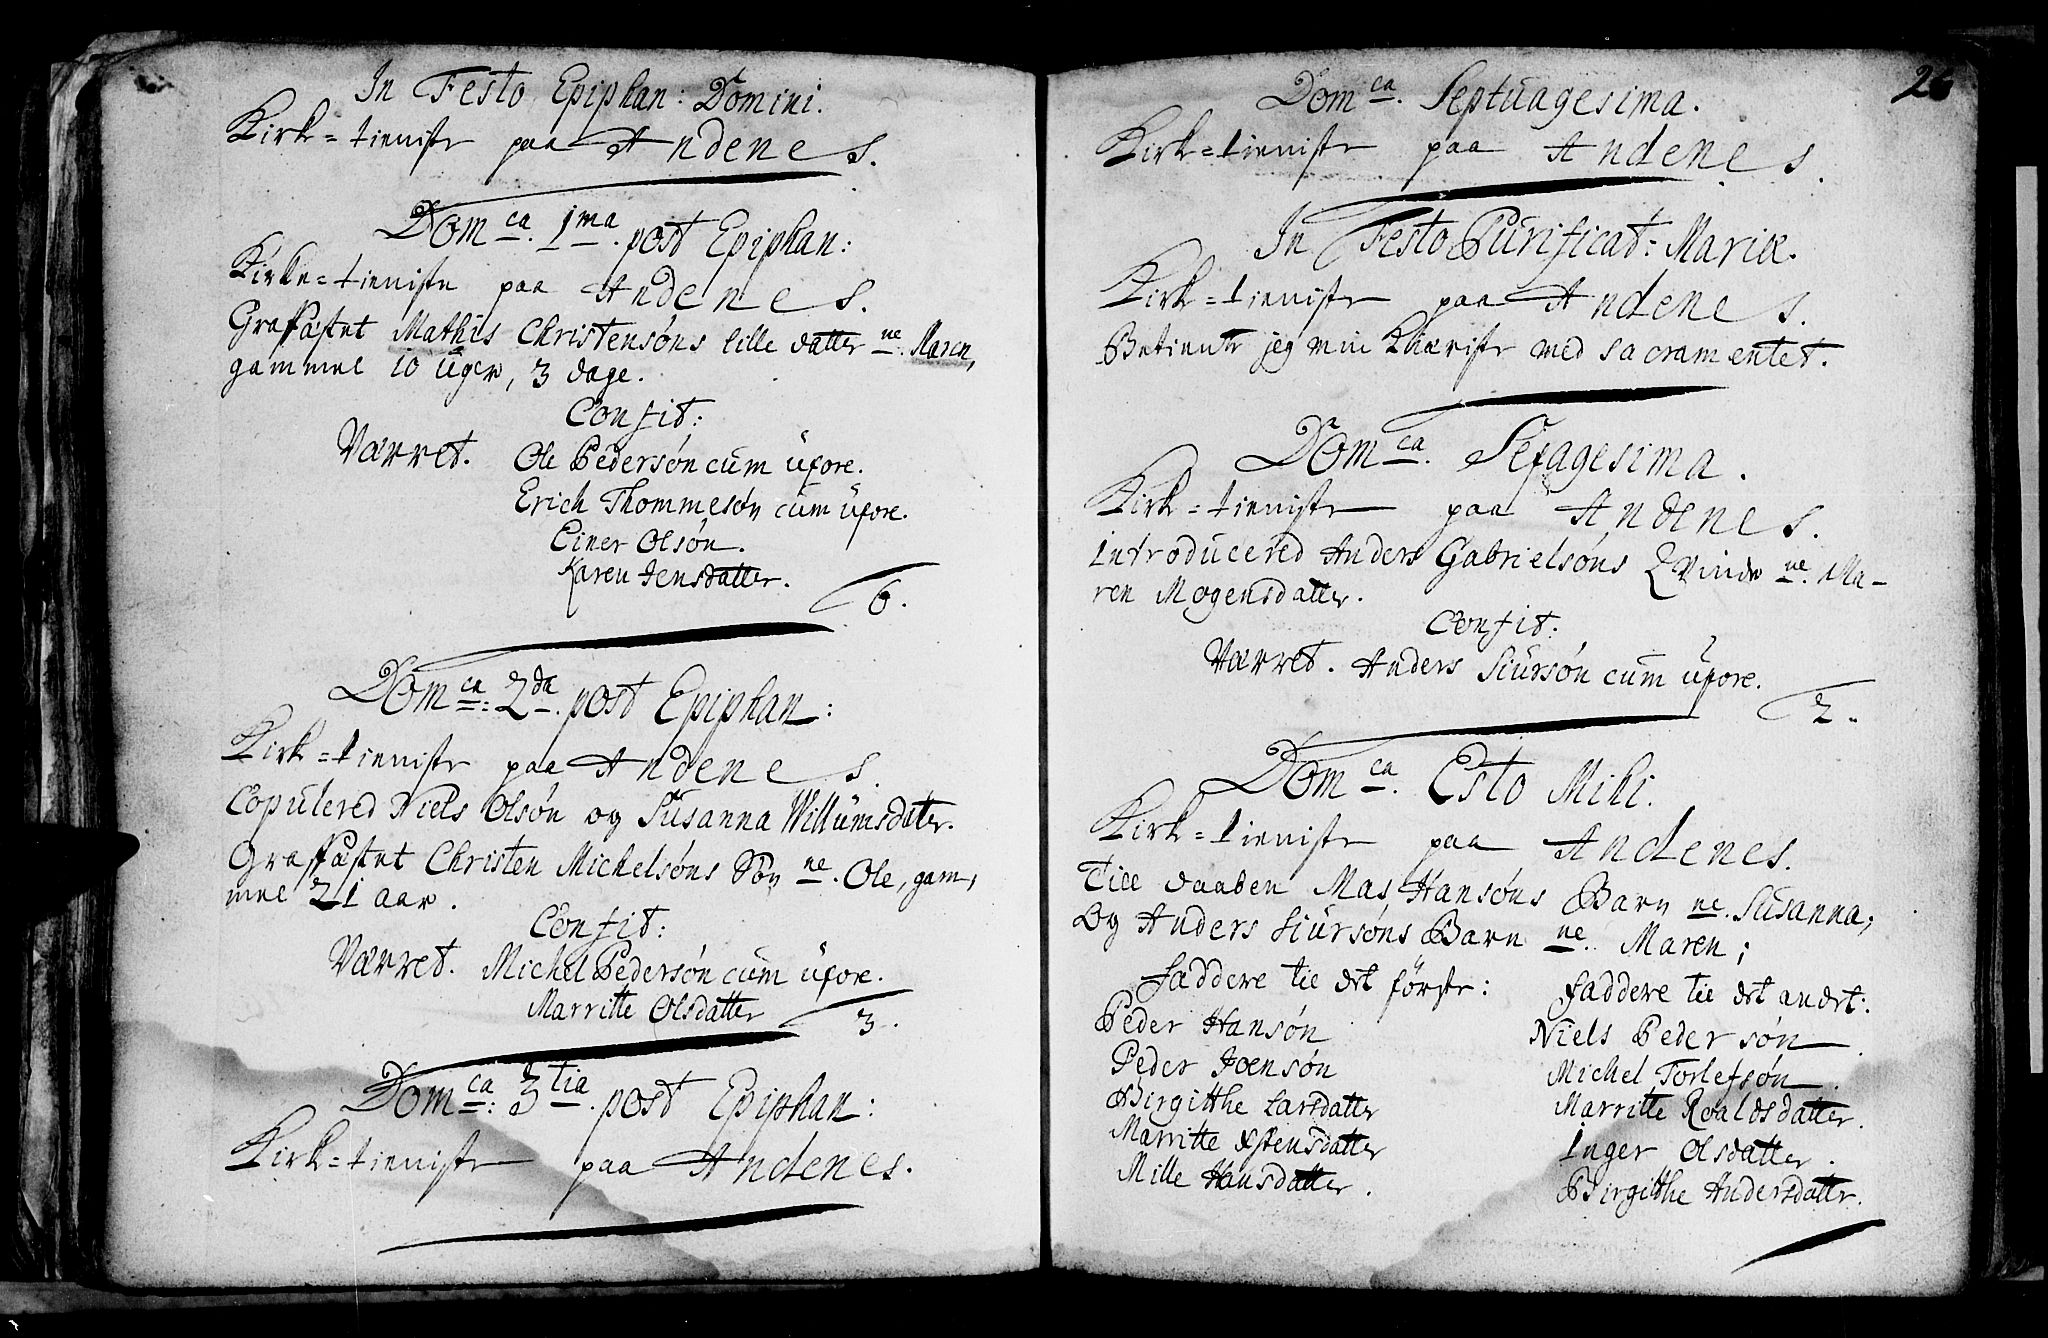 In Festo Epiphan: Domini.
Kirk=tieniste paa Andenes.
Domca. 1ma. post Epiphan:
Kirke=tieniste paa Andenes.
Graffæstet Mathis Christensøns lille datter ne. Maren,
gammel 10 uger, 3 dage.
Confit:
Værret. Ole Pedersøn cum uxore.
Erich Thommesøn cum uxore.
Einer Olsøn.
Karen Jensdatter.
6.
Domca: 2da. post Epiphan:
Kirk=tieniste paa Andenes.
Copulered Niels Olsøn og Susanna Willumsdater.
Graffæstet Christen Michelsøns Søn ne. Ole, gam,
mel 21 aar.
Confit:
Værret. Michel Pedersøn cum uxore.
Marritte Olsdatter
3.
Domca: 3tia. post Epiphan:
Kirk=tieniste paa Andenes.
26
Domca. Septuagesima.
Kirk=tieniste paa Andenes.
In Festo Purificat: Mariæ.
Kirk=tieniste paa Andenes.
Betiente jeg min Kiæriste med sacramentet.
Domca. Sexagesima.
Kirk=tieniste paa Andenes.
Introducered Anders Gabrielsøns Qvinde ne. Ma-
ren Mogensdatter.
Confit:
Værret. Anders Siursøn cum uxore.
2.
Domca. Esto Mihi.
Kirk=tieniste paa Andenes.
Till daaben Mas Hansøns Barn ne. Susanna;
Og Anders Siursøns Barn ne. Maren;
Faddere til det første:
Peder Hansøn
Peder Joensøn
Birgitthe Larsdatter
Marritte Østensdatter
Mille Hansdatter.
Faddere til det andet:
Niels Pedersøn.
Michel Torlefsøn.
Marritte Roaldsdatter.
Inger Olsdatter.
Birgitthe Andersdatter.